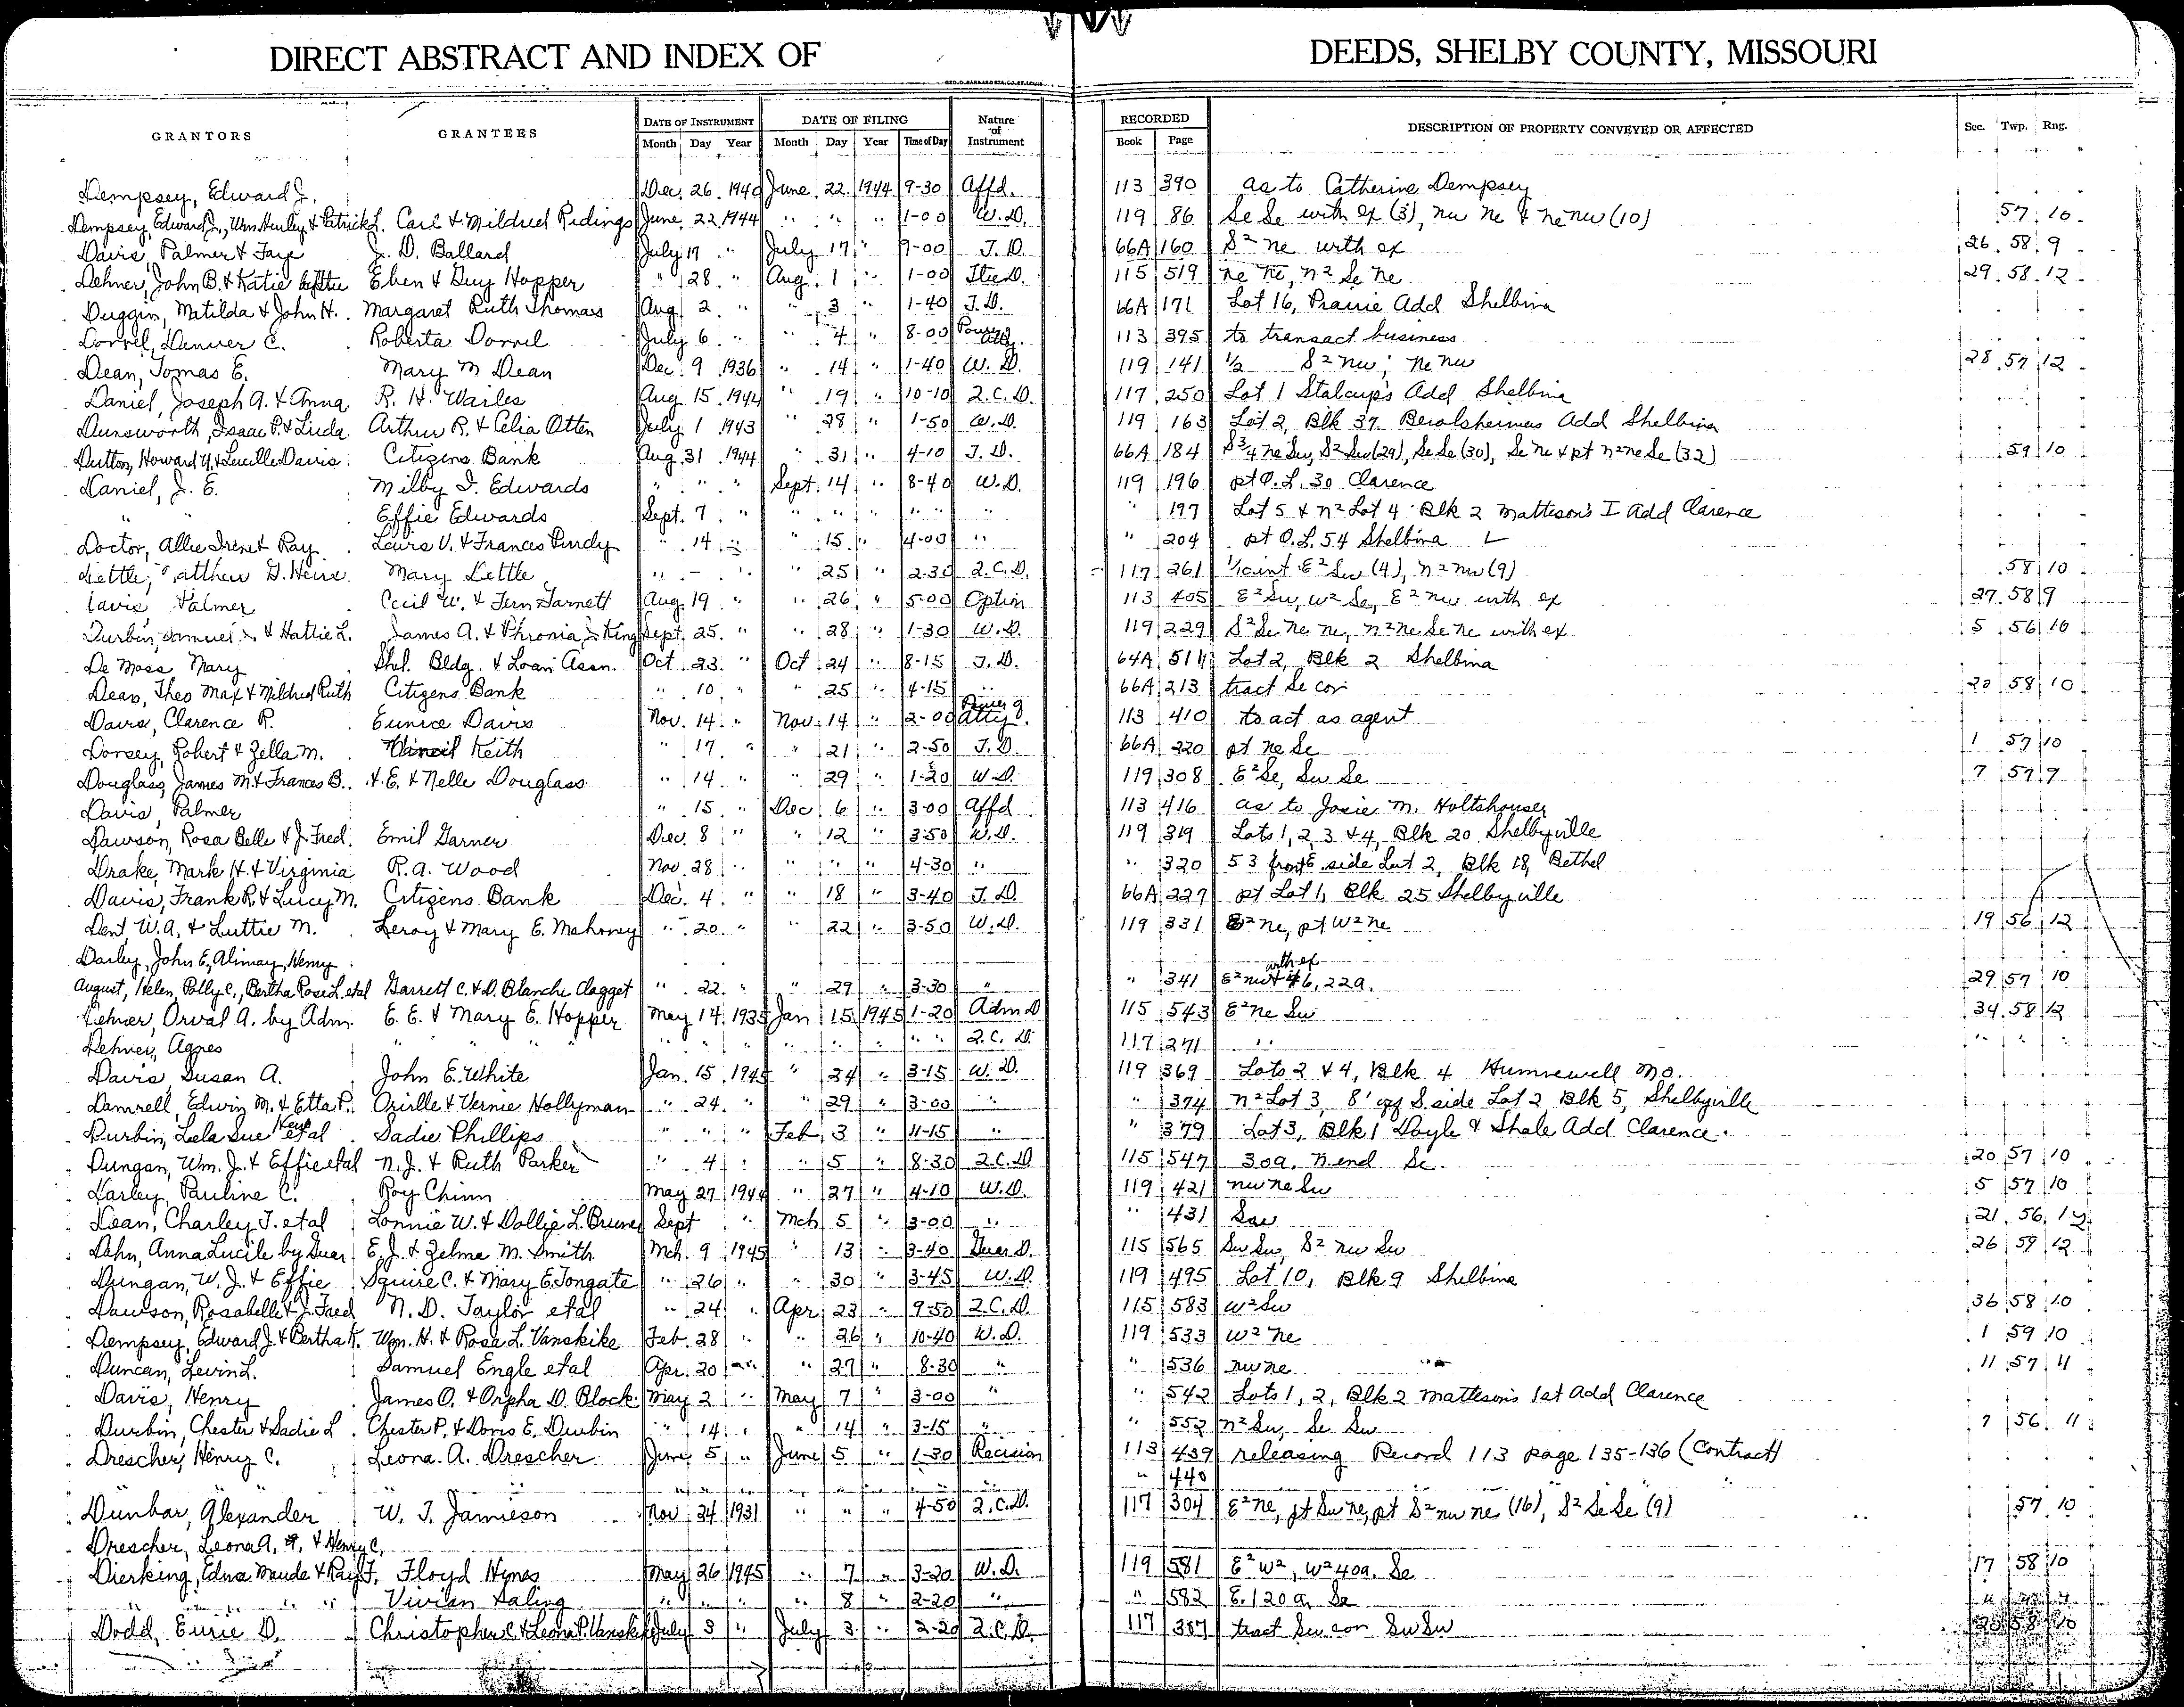 DIRECT ABSTRACT AND INDEX OF DEEDS, SHELBY COUNTY, MISSOURI
GRANTORS GRANTEES DATE OF INSTRUMENT DATE OF FILING Nature of Instrument RECORDED DESCRIPTION OF PROPERTY CONVEYED OR AFFECTED Sec. Twp. Rng.
Month Day Year Month Day Year Time of Day Book Page
Dempsey, Edward J. Dec. 26 1940 June 22 1944 9-30 Affd. 113 390 as to Catherine Dempsey
Dempsey, Edward J., Wm Henley & Patrick L. Carl & Mildred Ridings June 22 1944 " " " 1-00 W.D. 119 86 Se Se with ex (3), nw ne & ne nw (10) 57 10
Davis, Palmer & Faye J. D. Ballard July 17 " July 17 " 9-00 T.D. 66A 160 S² ne with ex 26 58 9
Dehner, John B. & Katie by Eben & Guy Hopper " 28 " Aug 1 " 1-00 115 519 ne ne, n² Se ne 29 58 12
Duggin, Matilda & John H. Margaret Ruth Thomas Aug 2 " " 3 " 1-40 T.D. 66A 171 Lot 16, Prairie Add Shelbina
Dorrel, Denver C. Roberta Dorrel July 6 " " 4 " 8-00 Power of Atty. 113 395 to transact business
Dean, Tomas E. Mary M Dean Dec. 9 1936 " 14 " 1-40 W.D. 119 141 ½ S² nw; ne nw 28 57 12
Daniel, Joseph A. & Anna R. H. Wailes Aug 15 1944 " 19 " 10-10 Q.C.D. 117 250 Lot 1 Stalcup's Add Shelbina
Dunsworth, Isaac P. & Luda Arthur R. & Celia Otten July 1 1943 " 28 " 1-50 W.D. 119 163 Lot 2, Blk 37 Add Shelbina
Dutton, Howard Y. & Lucille Davis Citizens Bank Aug. 31 1944 " 31 " 4-10 T.D. 66A 184 S¾ ne Sw, S² Sw (29), Se Se (30), Se ne & pt n² ne Se (32) 59 10
Daniel, J. E. Milby I. Edwards " " " Sept 14 " 8-40 W.D. 119 196 pt O.L. 30 Clarence
" Effie Edwards Sept. 7 " " " " " " " " 197 Lot 5 & n² Lot 4 Blk 2 Matteson's I Add Clarence
Doctor, Allie Irene & Ray Lewis V. & Frances Purdy " 14 " " 15 " 4-00 " " 204 pt O.L. 54 Shelbina
Dettle, Matthew G. Heirs Mary Dettle " - " " 25 " 2-30 Q.C.D. 117 261 1/10 int E² Sw (4), n² nw (9) 58 10
Davis Palmer Cecil W. & Fern Garnett Aug. 19 " " 26 " 5-00 Option 113 405 E² Sw, W² Se, E² nw with ex 27 58 9
Durbin, Samuel J. & Hattie L. James A. & Phronia J. King Sept. 25 " " 28 " 1-30 W.D. 119 229 S² Se ne ne, n² ne Se ne with ex 5 56 10
De Moss Mary Shel. Bldg. & Loan Assn. Oct. 23 " Oct 24 " 8-15 T.D. 64A 511 Lot 2, Blk 2 Shelbina
Dean, Theo Max & Mildred Ruth Citizens Bank " 10 " " 25 " 4-15 " 66A 213 tract Se cor 20 58 10
Davis, Clarence R. Eunice Davis Nov. 14 " Nov. 14 " 2-00 Power of Atty. 113 410 to act as agent
Dorsey, Robert & Zella M. Keith " 17 " " 21 " 2-50 T.D. 66A 220 pt ne Se 1 57 10
Douglass, James M. & Frances B. H. E. & Nelle Douglass " 14 " " 29 " 1-20 W.D. 119 308 E² Se, Sw Se 7 57 9
Davis, Palmer " 15 " Dec 6 " 3-00 Affd 113 416 as to Josie M. Holtshouser
Dawson, Rosa Belle & J. Fred Emil Garner Dec. 8 " " 12 " 3-50 W.D. 119 319 Lots 1, 2, 3 & 4, Blk 20 Shelbyville
Drake, Mark H. & Virginia R. A. Wood Nov 28 " " " " 4-30 " " 320 53 E side Lot 2, Blk 18, Bethel
Davis, Frank R. & Lucy M. Citizens Bank Dec. 4 " " 18 " 3-40 T.D. 66A 227 pt Lot 1, Blk 25 Shelbyville
Dent, W.A. & Luttie M. Leroy & Mary E. Mahoney " 20 " " 22 " 3-50 W.D. 119 331 E² ne, pt W² ne 19 56 12
Darley, John E., Alimay, Henry
August, Helen, Polly C., Bertha Rose L. etal Garrett C. & D. Blanche Clagget " 22 " " 29 " 3-30 " " 341 E² nw & 46.22a. with ex 29 57 10
Dehner, Orval A. by Adm. E. E. & Mary E. Hopper May 14 1935 Jan 15 1945 1-20 Adm D 115 543 E² ne Sw 34 58 12
Dehner, Agnes " " " " " " " " " " " Q.C.D. 117 271 " " " "
Davis Susan A. John E. White Jan. 15 1945 " 24 " 3-15 W.D. 119 369 Lots 2 & 4, Blk 4 Hunnewell Mo.
Damrell, Edwin M. & Etta P. Orille & Vernie Hollyman " 24 " " 29 " 3-00 " " 374 n² Lot 3, 8' off S. side Lot 2 Blk 5, Shelbyville
Durbin, Lela Sue etal Sadie Phillips " " " Feb. 3 " 11-15 " " 379 Lot 3, Blk 1 Doyle & Shale Add Clarence
Dungan, Wm. J. & Effie etal N. J. & Ruth Parker " 4 " " 5 " 8-30 Q.C.D 115 547 30a. n. end Se 20 57 10
Darley, Pauline C. Roy Chinn May 27 1944 " 27 " 4-10 W.D. 119 421 nw ne Sw 5 57 10
Dean, Charley T. etal Lonnie W. & Dollie L. Bruner Sept " Mch 5 " 3-00 " " 431 21 56 12
Dehn, Anna Lucile by Guar E. J. & Zelma M. Smith Mch 9 1945 " 13 " 3-40 Guar D. 115 565 Sw Sw, S² nw Sw 26 59 12
Dungan, W. J. & Effie Squire C. & Mary E. Tongate " 26 " " 30 " 3-45 W.D. 119 495 Lot 10, Blk 9 Shelbina
Dawson, Rosabelle & J. Fred N. D. Taylor etal " 24 " Apr. 23 " 9-50 Q.C.D. 115 583 W² Sw 36 58 10
Dempsey, Edward J. & Bertha K. Wm. H. & Rosa L. Vanskike Feb 28 " " 26 " 10-40 W.D. 119 533 W² ne 1 59 10
Duncan, Levin L. Samuel Engle etal Apr. 20 " " 27 " 8-30 " " 536 nw ne 11 57 11
Davis, Henry James O. & Orpha D. Block May 2 " May 7 " 3-00 " " 542 Lots 1, 2, Blk 2 Matteson's 1st Add Clarence
Durbin, Chester & Sadie L. Chester P. & Doris E. Durbin " 14 " " 14 " 3-15 " " 552 n² Sw, Se Sw 7 56 11
Drescher, Henry C. Leona A. Drescher June 5 " June 5 " 1-30 Recision 113 439 releasing Record 113 page 135-136 (Contract)
" " " " " " " " " " " 440
Dunbar, Alexander W. T. Jamieson Nov 24 1931 " " " 4-50 Q.C.D. 117 304 E² ne, pt Sw ne, pt S² nw ne (16), S² Se Se (9) 57 10
Drescher, Leona A. & Henry C.
Dierking, Edna Maude & Ray F. Floyd Hynes May 26 1945 " 7 " 3-20 W.D. 119 581 E² W², W² 40a. Se 17 58 10
" " " " Vivian Haling " " " " 8 " 2-20 " " 582 E. 120 a. Se " " "
Dodd, Eurie D. Christopher C. & Leona P. Vanskike July 3 " July 3 " 2-20 Q.C.D. 117 387 tract Sw cor Sw Sw 20 58 10